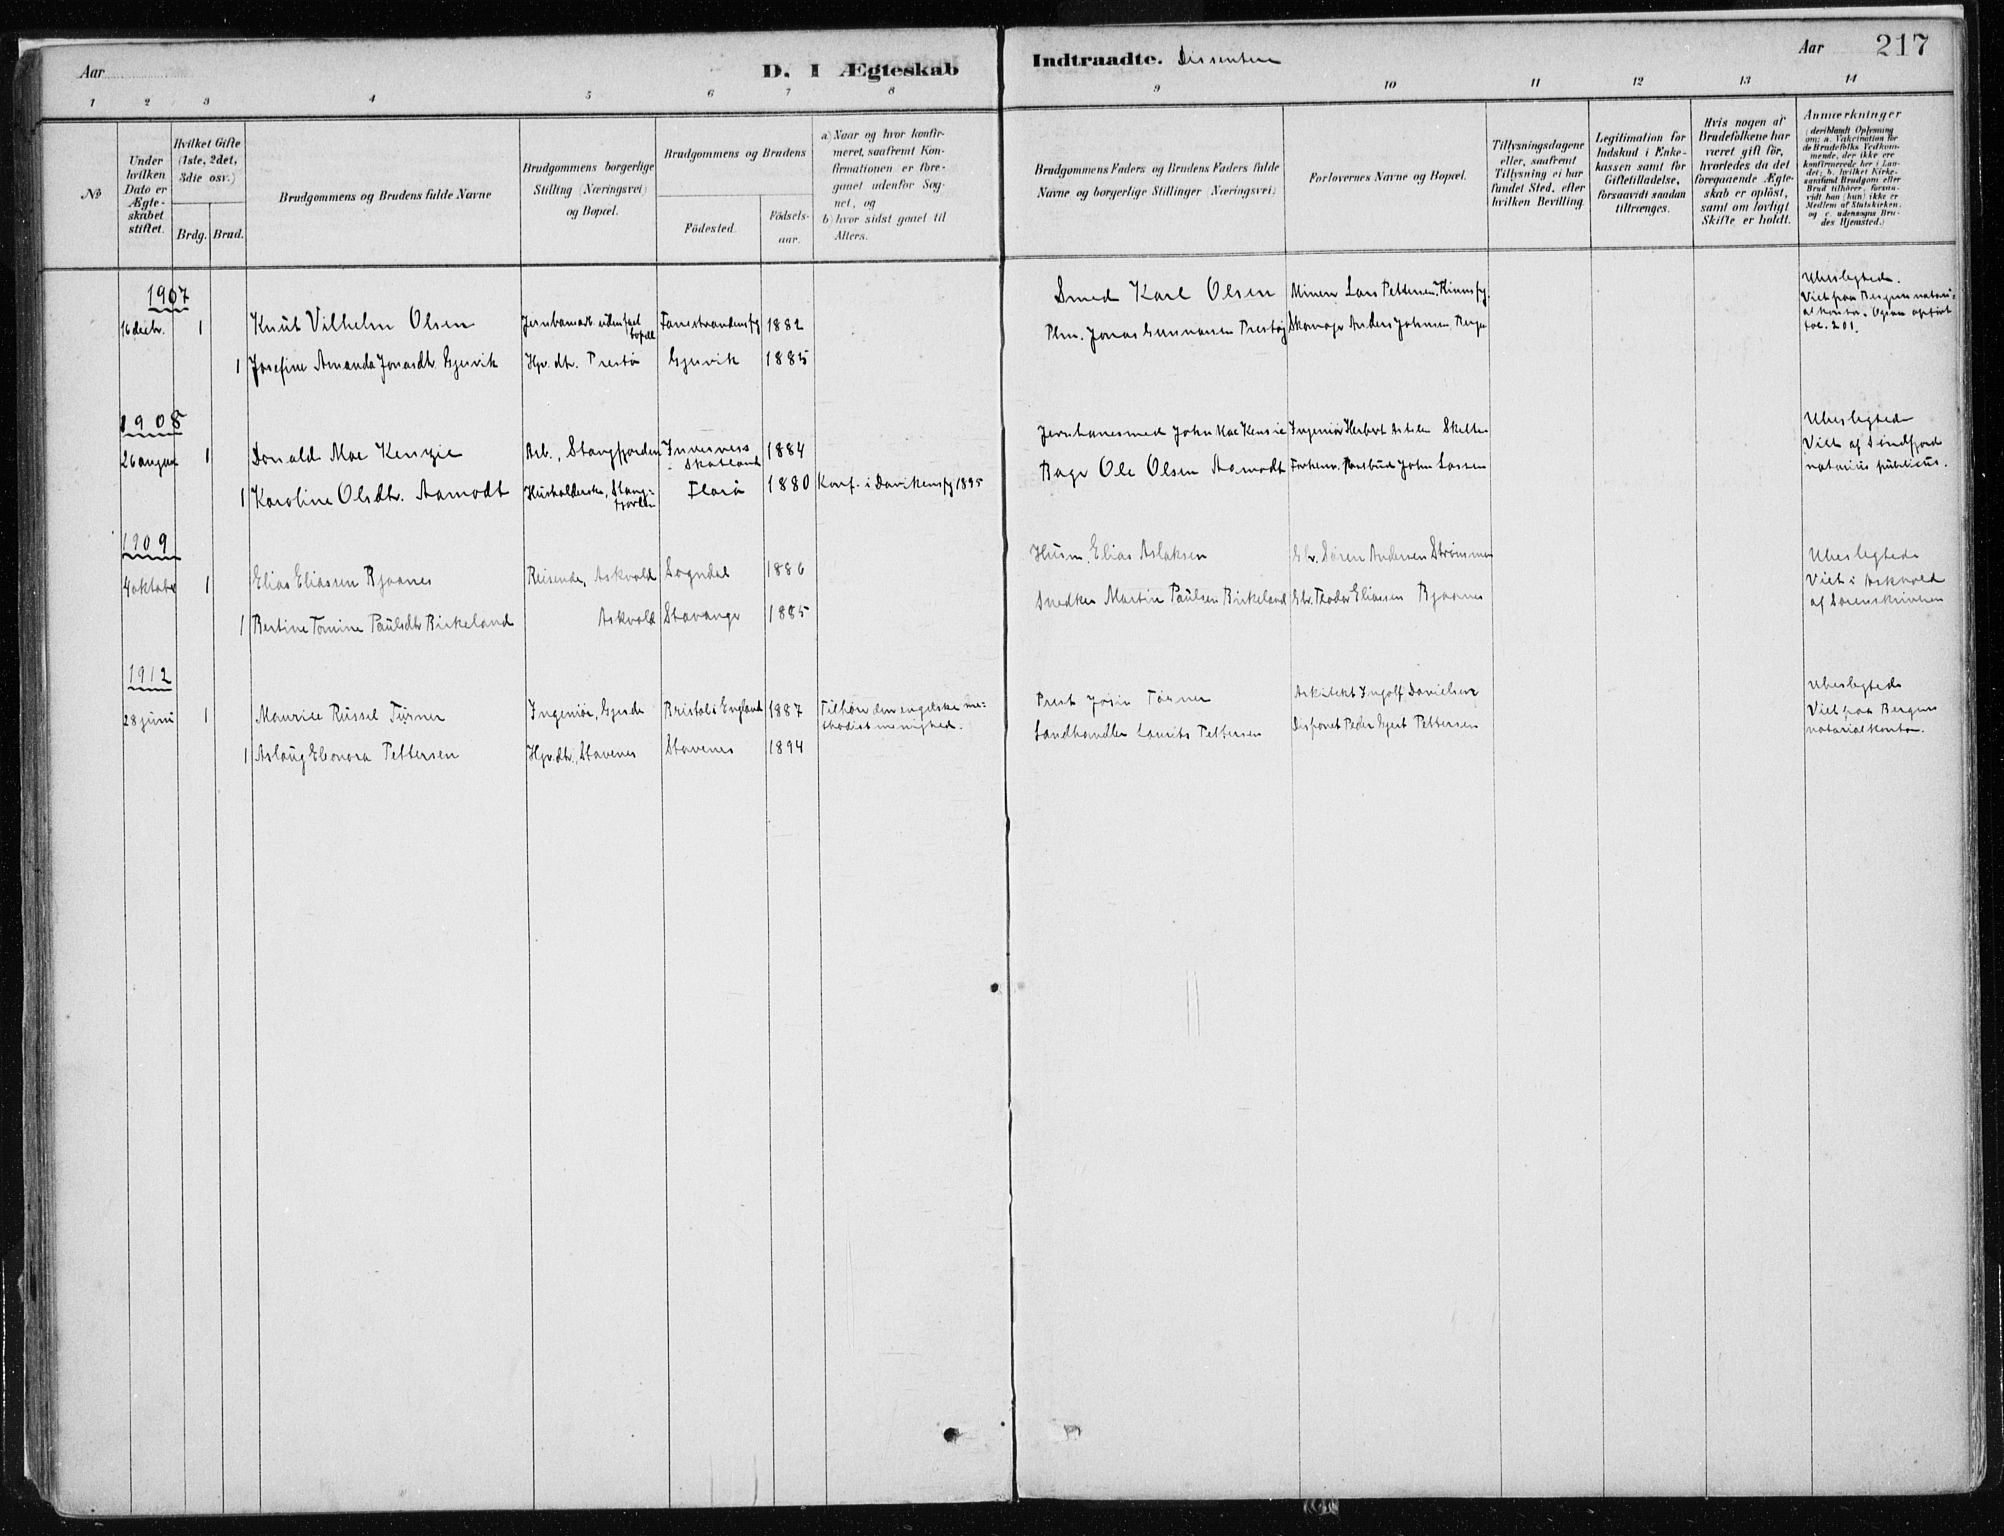 Aar
D. I Ægteskab
Indtraadte. Dissentere
Aar
217
1 2 3 4 5 6 7 8 9 10 11 12 13 14
No
Under
hvilken
Dato er
Ægte-
skabet
stiftet.
Hvilket Gifte
(1ste, 2det,
3die osv.)
Brdg. Brud.
Brudgommens og Brudens fulde Navne
Brudgommens borgerlige
Stilling (Næringsvei)
og Bopæl.
Brudgommens og Brudens
Födested.
Födsels-
aar.
a) Naar og hvor konfir-
meret, saafremt Kon-
firmationen er fore-
gaaet udenfor Sog-
net, og
b) hvor sidst gaaet til
Alters.
Brudgommens Faders og Brudens Faders fulde
Navne og borgerlige Stillinger (Næringsvei)
Forlovernes Navne og Bopæl.
Tillysningsdagene
eller, saafremt
Tillysning ei har
fundet Sted, efter
hvilken Bevilling.
Legitimation for
Indskud i Enke-
kassen samt for
Giftetilladelse,
forsaavidt saadan
tiltrænges.
Hvis nogen af
Brudefolkene har
været gift för,
hvorledes da det
foregaaende Ægte-
skab er oplöst,
samt om lovligt
Skifte er holdt.
Anmærkninger
(deriblandt Oplysning
om: a. Vakcination for
de Brudefolks Vedkom-
mende, der ikke ere
konfirmerede her i Lan-
det; b. hvilket Kirke-
samfund Brudgom eller
Brud tilhører, forsaa-
vidt han (hun) ikke er
Medlem af Statskirken,
og c. udensogns Bru-
des Hjemsted.)
1907
16 decbr. 1 Knut Vilhelm Olsen
Tanestrandens pg 1882
Smed Karl Olsen
Minerer Lars Pettersen, Kinns pg.
Ubeslegtede.
Viet paa Bergens notari-
alkontor. Ogsaa opført
fol. 201.
1 Josefine Amanda Jonasdtr. Gjesvik
Hpv. dtr. Prestø Gjesvik 1885
Plm. Jonas Gunnarsen Prestøj
Skomager Anders Johnsen, Bergen
1908
26 august 1 Donald Mac Kenzie
Arb., Stangfjorden Inverness
i Skotland 1884
Jernbanesmed John Mac Kensie
Ingeniør Herbert
Ubeslegtede
Viet af Søndfjord
notarius publicus.
1 Karoline Olsdtr. Aamodt
Husholderske, Stang-
fjorden Florø 1880 Konf. i Davikens pg 1895
Bager Ole Olsen Aamodt
John Lassen
1909
4 oktober 1 Elias Eliassen Bjaanes
Reisende, Askvold Sogndal 1886
Husm. Elias Aslaksen
Gbr. Søren Andersen Strømmen
Ubeslegtede
Viet i Askvold
af Sorenskriveren
1 Bertine Tomine Paulsdtr Birkeland
Askvold Stavanger 1885
Snedker Martin Paulsen Birkeland
Gbr. Theodor Eliassen Bjaanes
1912
28 juni 1 Maurice Russel Turner
Ingeniør, Bristol i England 1887 Tilhører den engelske me-
thodistmenighed.
Prest Josia Turner
Arkitekt Ingolf Danielsen
Ubeslegtede
Viet paa Bergens
notarialkontor.
1 Aslaug Eleonora Pettersen
Hpv. dtr., Stavenes Stavenes 1894
Landhandler Laurits Pettersen
Disponent Peder Gjert Pettersen